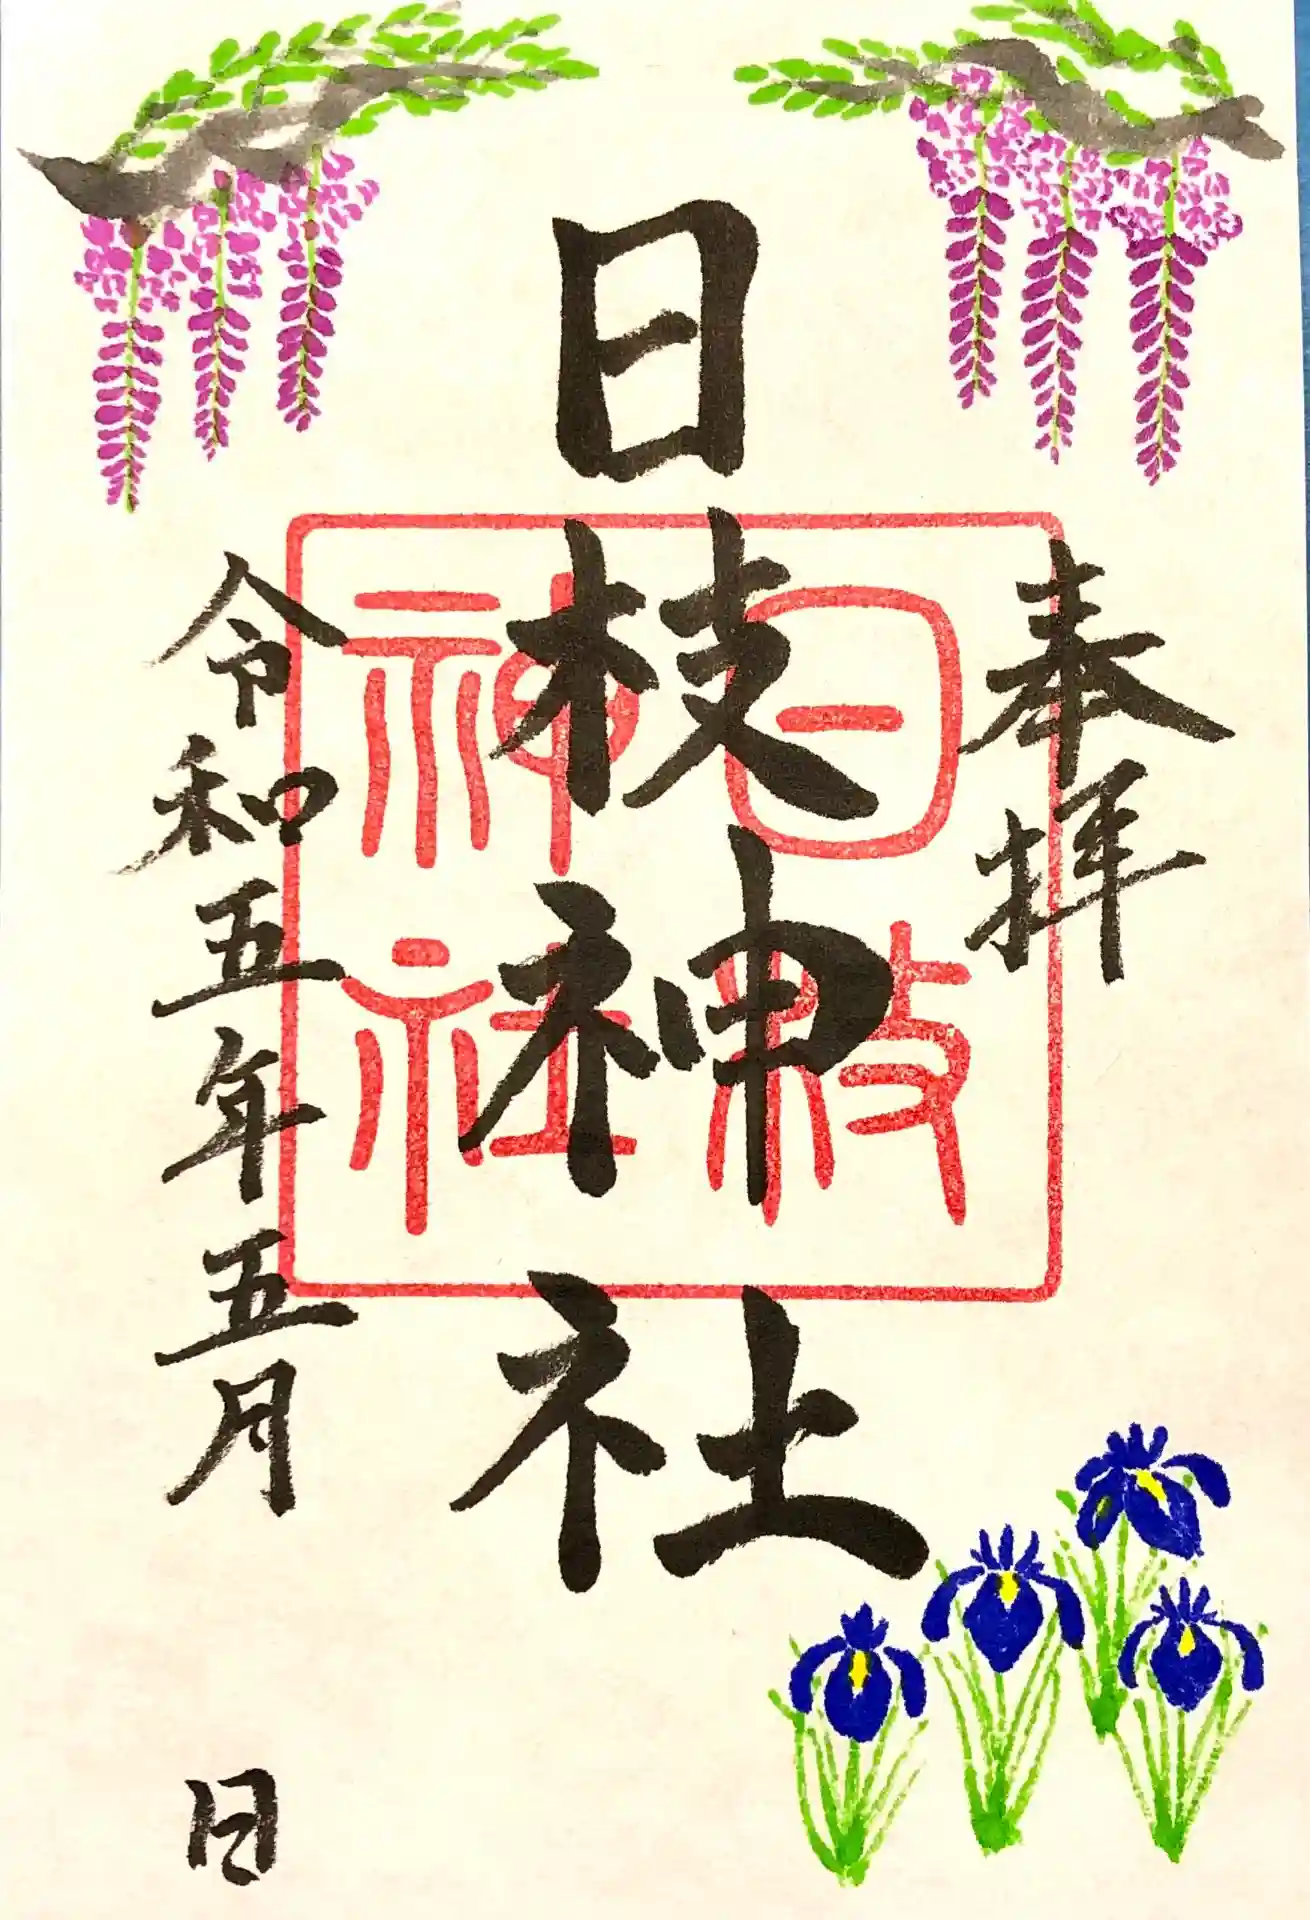 奉拝
日枝神社
日枝
神社
令和五年五月 日